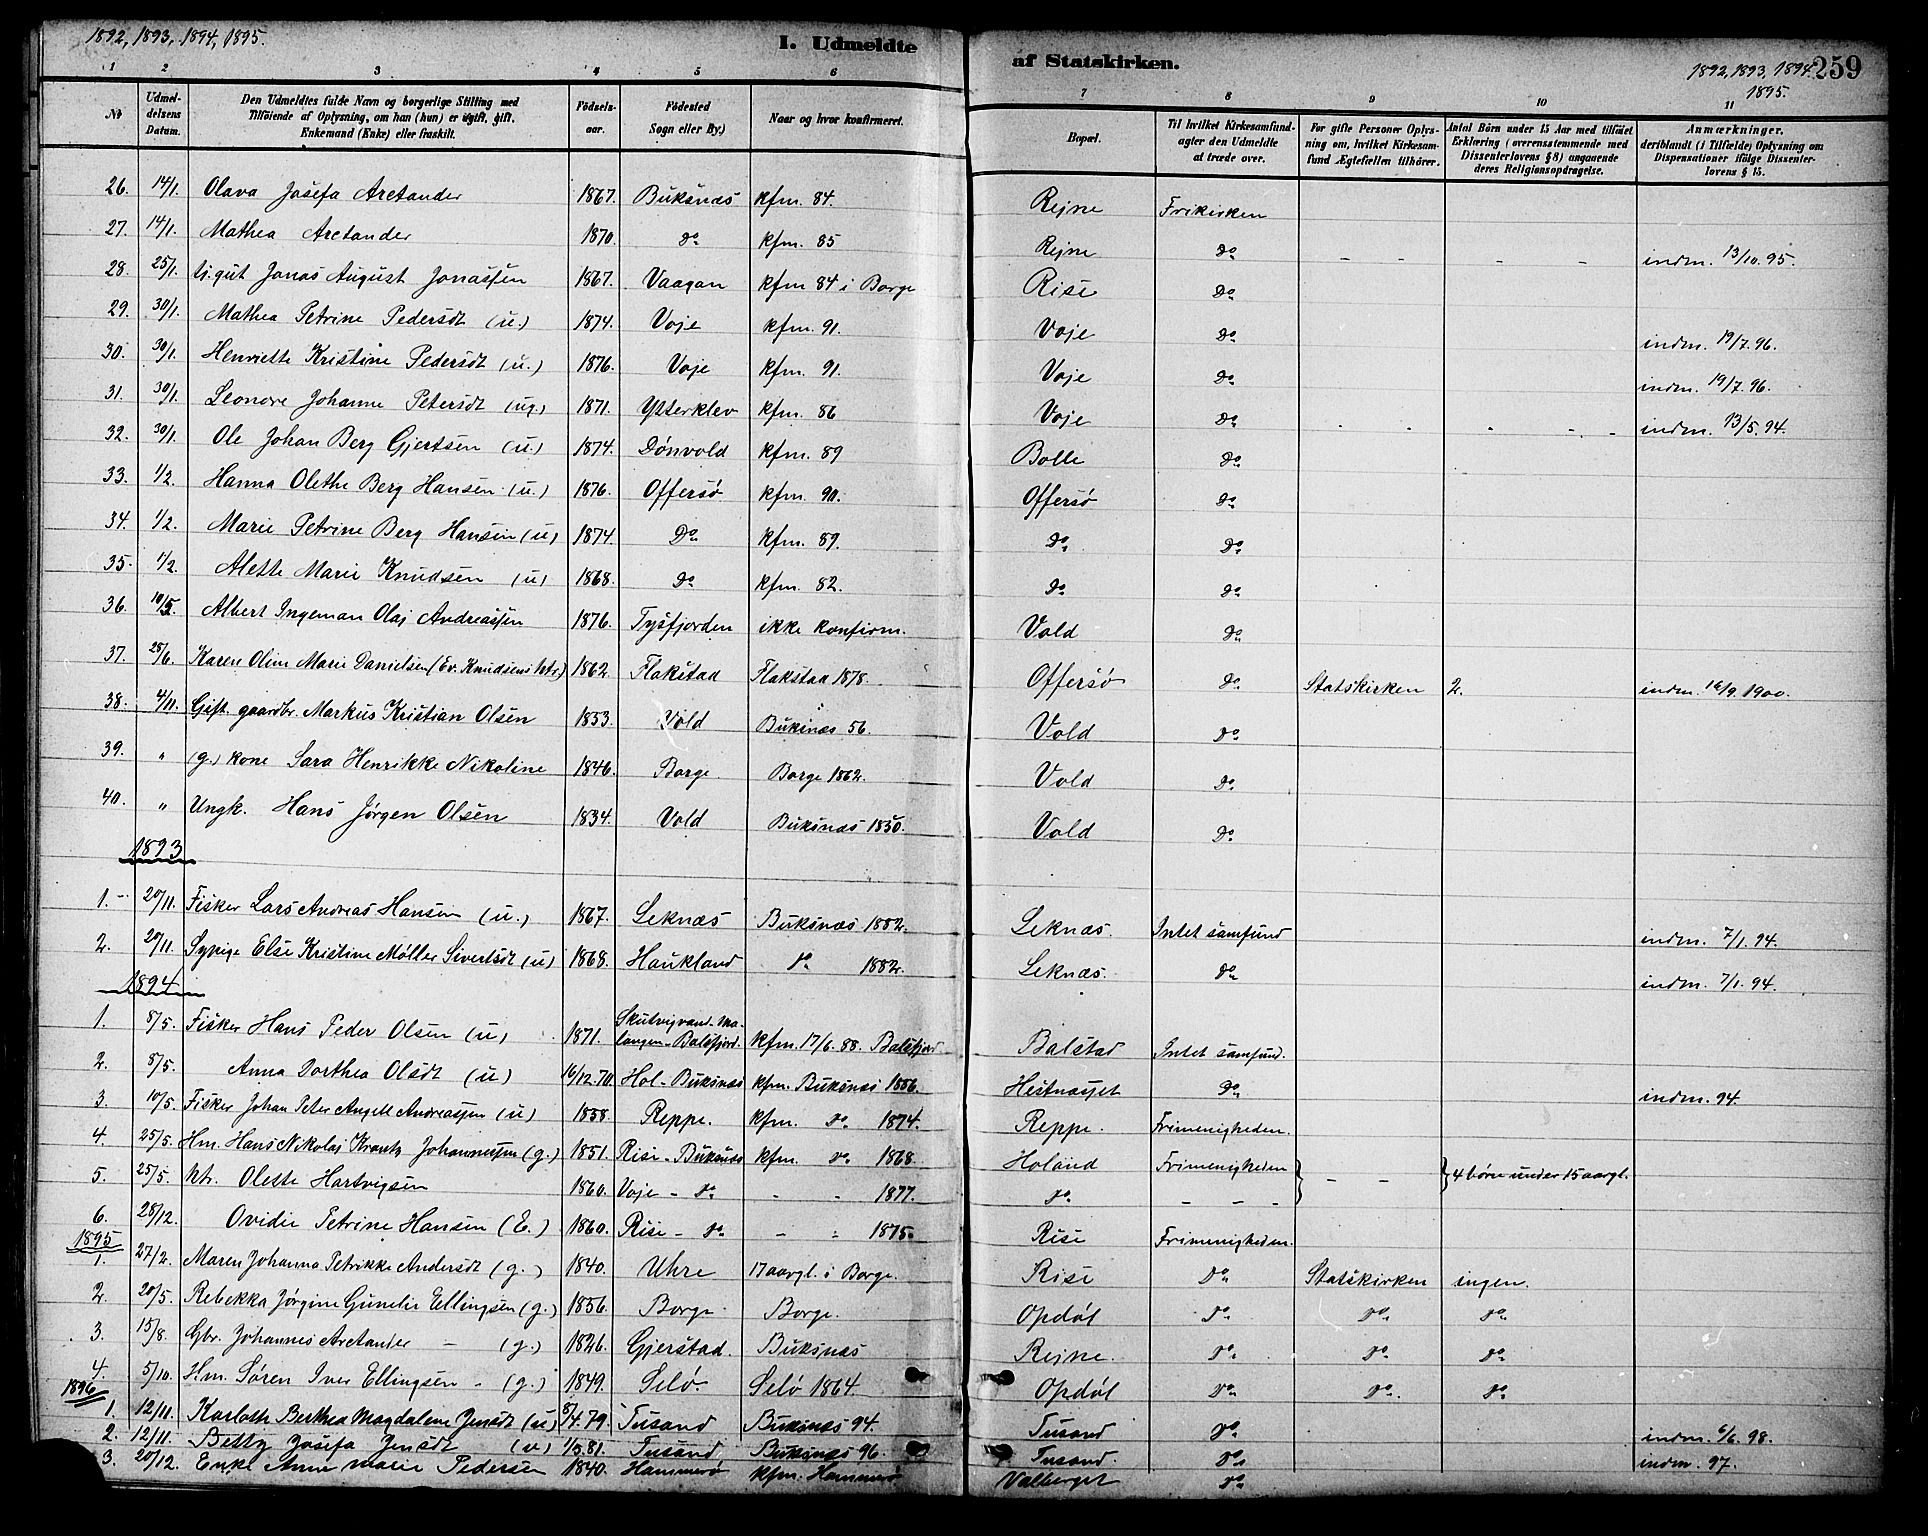 1892, 1893, 1894, 1895.
I. Udmeldte af Statskirken.
1892, 1893, 1894 259
1895.
1 2 3 4 5 6 7 8 9 10 11
No
Udmeldelsens Datum.
Den Udmeldtes fulde Navn og borgerlige Stilling med Tilføiende af Oplysning, om han (hun) er ugift, gift, Enkemand (Enke) eller fraskilt.
Fødselsaar.
Fødested Sogn eller By.)
Naar og hvor konfirmeret.
Bopæl.
Til hvilket Kirkesamfund agter den Udmeldte at træde over.
For gifte Personer Oplysning om, hvilket Kirkesamfund Ægtefællen tilhører.
Antal Børn under 15 Aar med tilføiet Erklæring (overensstemmende med Dissenterlovens § 8) angaaende deres Religionsopdragelse.
Anmærkninger, deriblandt (i Tilfælde) Oplysning om Dispensationer ifølge Dissenterlovens § 15.
26. 14/1. Olava Josefa Aretander 1867. Buksnæs kfm. 84. Rejne Frikirken
27. 14/1. Mathea Aretander 1870. do kfm. 85 Rejne do - - - - indm. 13/10. 95.
28. 25/1. U.gut Jonas August Jonassen 1867. Vaagan kfm 84 i Borge Rise do
29. 30/1. Mathea Petrine Pedersdt (u.) 1874. Voje kfm. 91. Voje do indm. 19/7. 96.
30. 30/1. Henriette Kristine Pedersdt (u.) 1876. Voje kfm. 91. Voje do indm. 19/7. 96.
31. 30/1. Leonore Johanne Petersdt (ug.) 1871. Ytterklev kfm. 86 Voje do - - - - indm. 13/5. 94.
32. 30/1. Ole Johan Berg Gjertsen (u.) 1874. Dønvold kfm. 89 Bolle do
33. 1/2. Hanna Olethe Berg Hansen (u.) 1876. Offersø kfm. 90. Offersø do
34. 1/2. Marie Petrine Berg Hansen (u) 1874. Do kfm. 89. do do
35. 1/2. Alette Marie Knudsen (u) 1868. do kfm. 82. do do
36. 10/5. Albert Ingeman Olaj Andreassen 1876. Tysfjorden ikke konfirm. Vold do
37. 25/6. Karen Oline Marie Danielsen (Ev. Knudsens ktr.) 1862. Flakstad Flakstad 1878. Offersø do Statskirken 2. indm. 16/9 1900.
38. 4/11. Gift. gaardbr. Markus Kristian Olsen 1833. Vold Buksnæs 56. Vold do
39. " (g.) kone Sara Henrikke Nikoline 1846. Borge. Borge 1862. Vold do
40. " Ungk. Hans Jørgen Olsen 1834. Vold Buksnæs 1850. Vold do
1893
1. 20/11. Fisker Lars Andreas Hansen (u.) 1867. Leknæs Buksnæs 1882. Leknæs. Intet samfund indm. 7/1. 94.
2. 20/11. Sypige Else Kristine Møller Sivertsdt (u) 1868. Haukland do 1882. Leknæs. do indm. 7/1. 94.
1894
1. 8/5. Fisker Hans Peder Olsen (u) 1871. Skutvigvand-Malangen-Balsfjord. kfm. 17/6. 88. Balsfjord Balstad Intet samfund.
2. 8/5. Anna Dorthea Olsdt (u) 16/12. 70. Hol-Buksnæs kfm. Buksnæs 1886. Hestnæsset do indm. 94.
3. 10/5. Fisker Johan Peter Angell Andreassen (u) 1858. Reppe. kfm. do 1874. Reppe. Frimenigheden.
4. 25/5. Hm. Hans Nikolaj Krantz Johannessen (g.) 1851. Rise - Buksnæs kfm. do 1868. Holand Frimenigheden - - 4 børn under 15 aargl.
5. 25/5. ktr. Olette Hartvigsen 1860. Voje - do - - 1877. do - - -
6. 28/12. Ovidie Petrine Hansen (E.) 1860. Rise - do - - 1875. Rise Frimenigheden.
1895
1. 27/2. Maren Johanna Petrikke Andersdt (g.) 1840. Uhre 17 aargl. i Borge. Rise Do Statskirken ingen.
2. 20/5. Rebekka Jørgine Gunelie Ellingsen (g.) 1856. Borge. Borge. Opdøl do do do
3. 15/8. Gbr. Johannes Aretander - (g.) 1826. Gjerstad. Buksnæs Rejne. do do do
4. 5/10. Hm. Søren Iver Ellingsen - (g.) 1849. Selø. Selø 1864. Opdøl do do do
1896
1. 12/11. Karloth Berthea Magdalene Jensdt (u) 8/4. 79. Tusand Buksnæs 94. Tusand do indm. 6/6. 98.
2. 12/11. Betty Josefa Jensdt (u) 1/5. 81. Tusand Buksnæs 96. Tusand. do indm. 97.
3. 20/12. Enke Anne Marie Pedersen 1840. Hammerø kfm. Hammerø. Valberget do